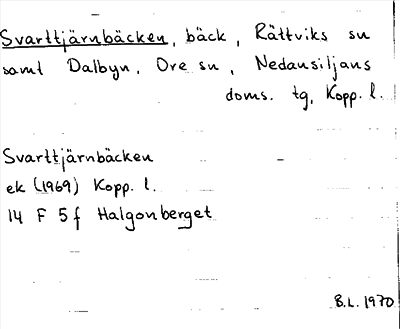 Svarttjärnbäcken, bäck, Rättviks sn
samt Dalbyn, Ore sn, Nedansiljans
doms. tg, Kopp. l.
Svarttjärnbäcken
ek (1969) Kopp. l.
14 F 5 f Halgonberget
B.L. 1970